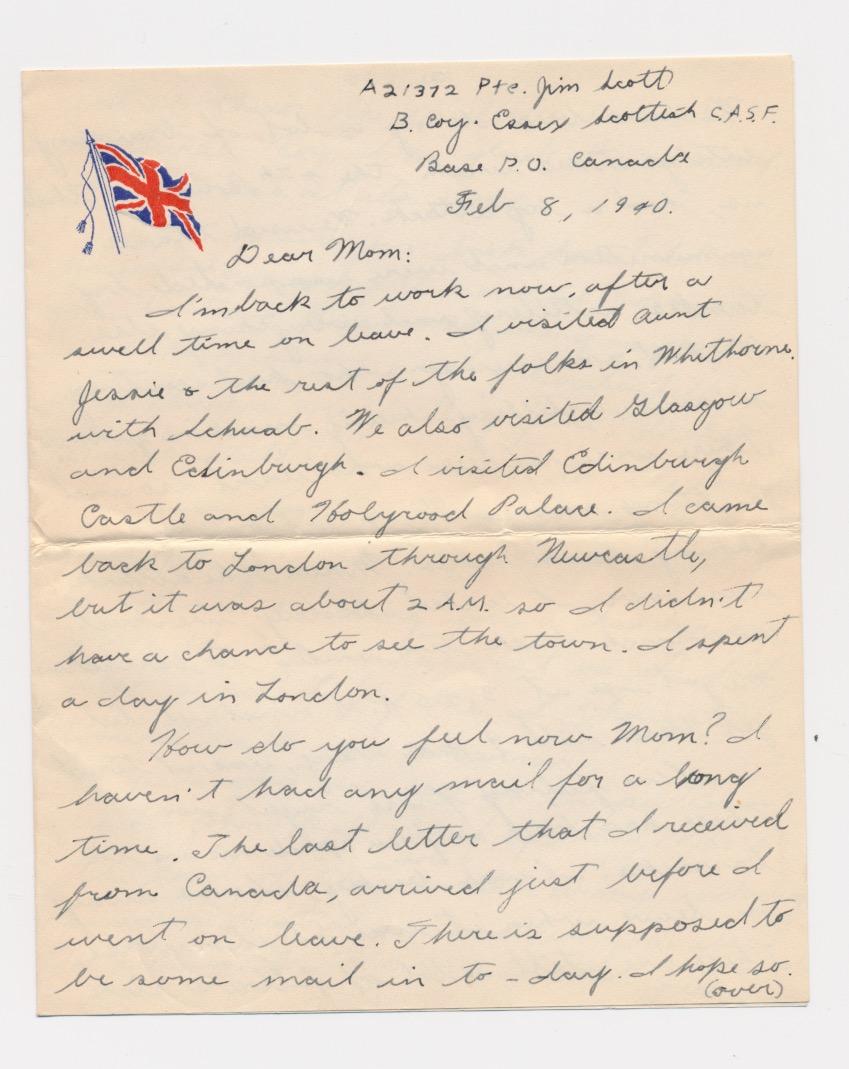 A21372 Pte. Jim Scott
B. Coy. Essex Scottish C.A.S.F.
Base P.O. Canada
Feb 8, 1940.
Dear Mom:
I'm back to work now, after a
swell time on leave. I visited Aunt
Jessie & the rest of the folks in Whithorne.
with Schuab. We also visited Glasgow
and Edinburgh. I visited Edinburgh
Castle and Holyrood Palace. I came
back to London through Newcastle,
but it was about 2 A.M. so I didn't
have a chance to see the town. I spent
a day in London.
How do you feel now Mom? I
haven't had any mail for a long
time. The last letter that I received
from Canada, arrived just before I
went on leave. There is supposed to
be some mail in to-day. I hope so.
(over)